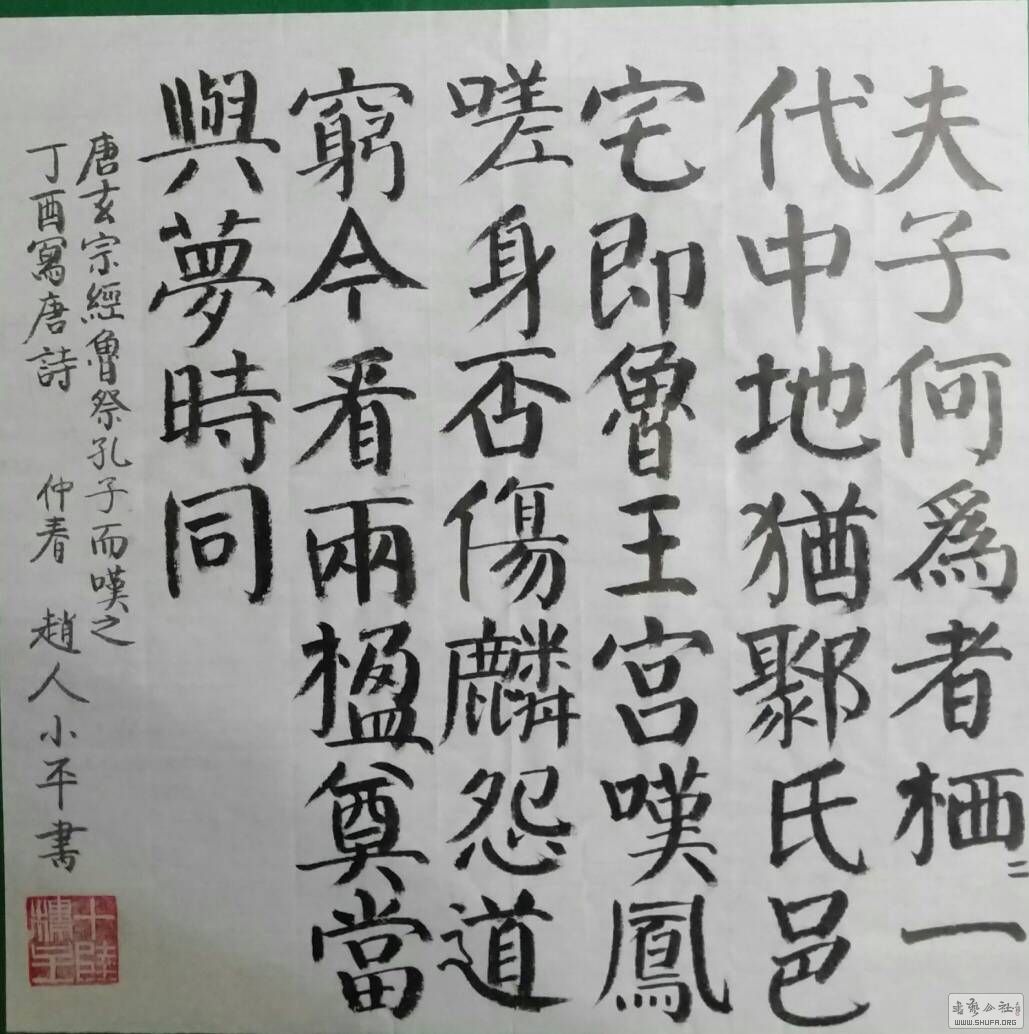 夫子何爲者栖〻一
代中地猶鄹氏邑
宅即魯王宮嘆鳳
嗟身否傷麟怨道
窮今看兩楹奠當
與夢時同
唐玄宗經魯祭孔子而嘆之
丁酉寫唐詩 仲春 趙人小平書
WWW.SHUFA.ORG